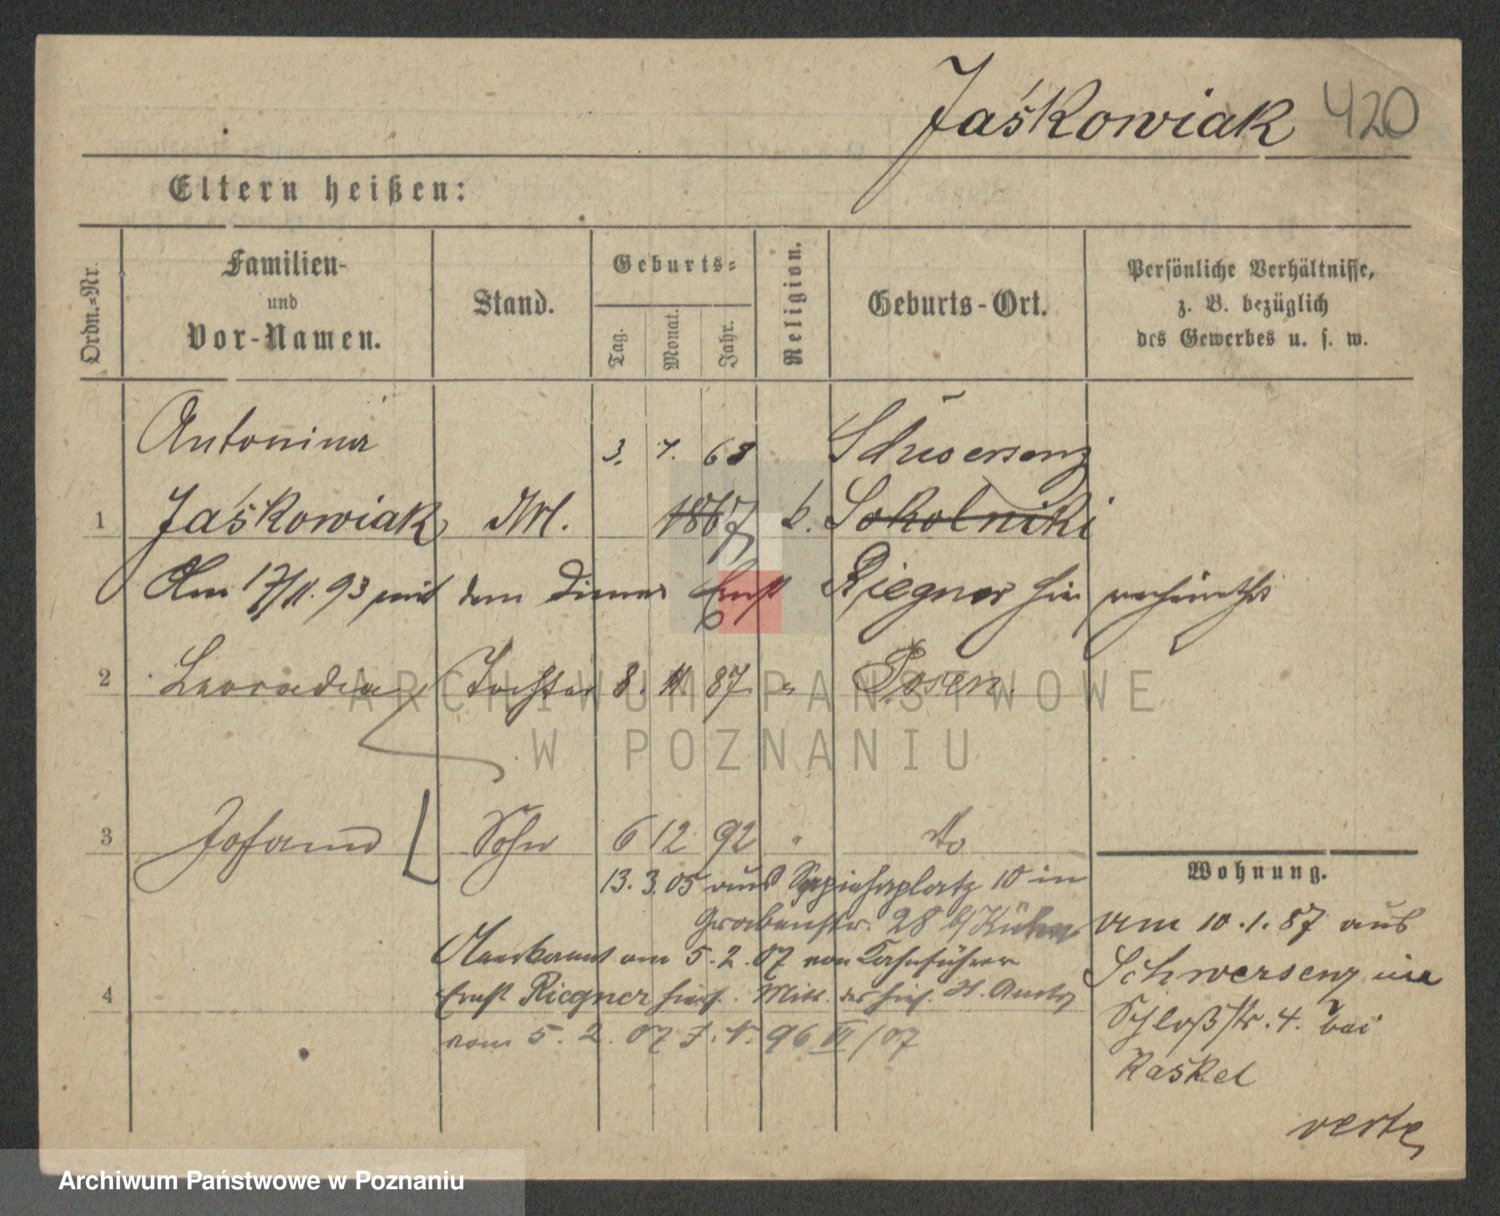 Jaśkowiak 420
Eltern heißen:
Ordn.-Nr.
Familien-
und
Vor-Namen.
Stand.
Geburts-
Tag.
Monat.
Jahr.
Religion.
Geburts-Ort.
Persönliche Verhältnisse,
z. B. bezüglich
des Gewerbes u. s. w.
Antonina 3. 7. 68 Schwersenz
1 Jaśkowiak 1867 k. Sokolniki
Am 17/11. 93 mit dem Diener Ernst Riegner hier verheirathet
2 Leocadia Tochter 8. 11 87 " Posen.
3 Johann Sohn 6 12 92 " do
13. 3. 05 aus Sapiehaplatz 10 in
Grabenstr. 28 b/ Kühn
Anerkannt am 5. 2. 07 von Kahnführer
4 Ernst Riegner hies. Mitt. des hies.
vom 5. 2. 07 J. N. 96 II/07
Wohnung.
Am 10. 1. 87 aus
Schwersenz in
Schloßstr. 4. bei
Kaskel
verte
ARCHIWUM PAŃSTWOWE
W POZNANIU
Archiwum Państwowe w Poznaniu